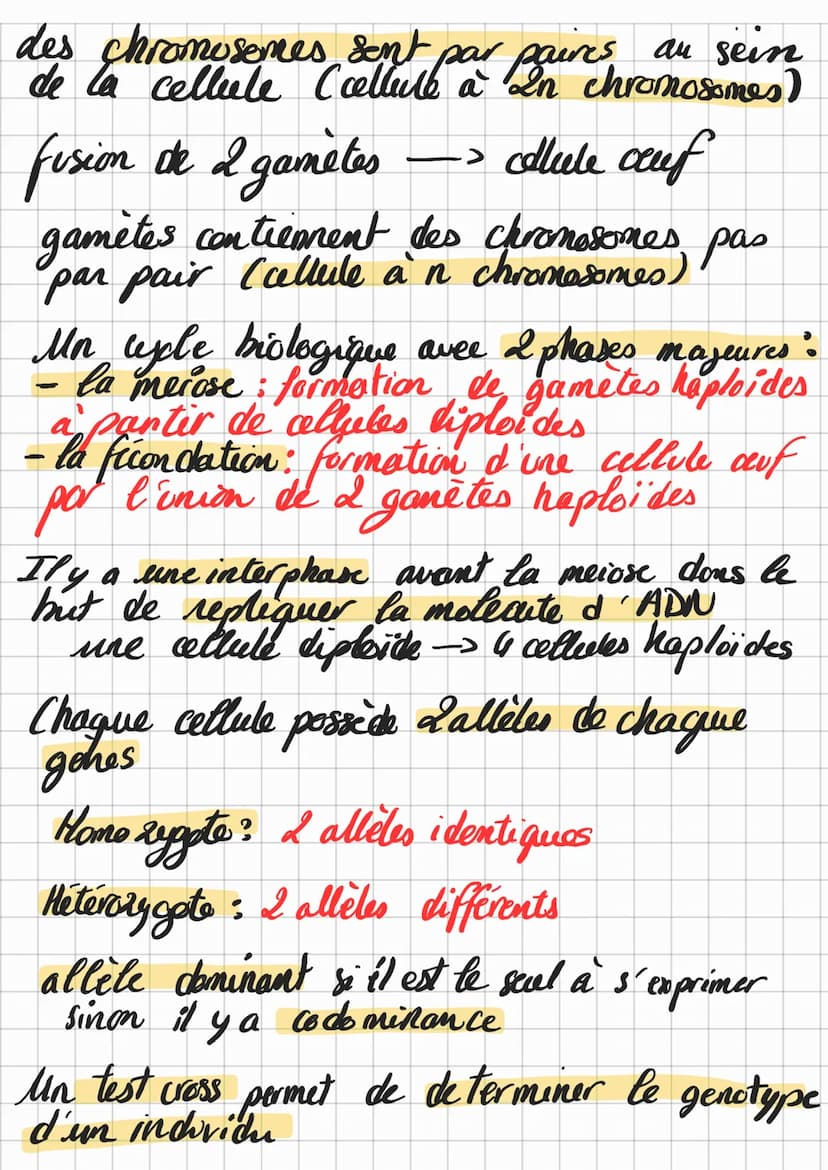 des chromosomes sont par paires au sein
de la cellule (cellule à 2n chromosomes)
fusion de 2 gamètes —> cellule œuf
gamètes contiennent des chromosomes pas
par pair (cellule à n chromosomes)
Un cycle biologique avec 2 phases majeures :
- la meiose : formation de gamètes haploïdes
à partir de cellules diploïdes
- la fécondation : formation d'une cellule œuf
par l'union de 2 gamètes haploïdes
Il y a une interphase avant la meiose dans le
but de repliquer la molécule d'ADN
une cellule diploïde —> 4 cellules haploïdes
Chaque cellule possède 2 allèles de chaque
gènes
Homozygote : 2 allèles identiques
Hétérozygote : 2 allèles différents
allèle dominant si il est le seul à s'exprimer
sinon il y a codominance
Un test cross permet de determiner le genotype
d'un individu